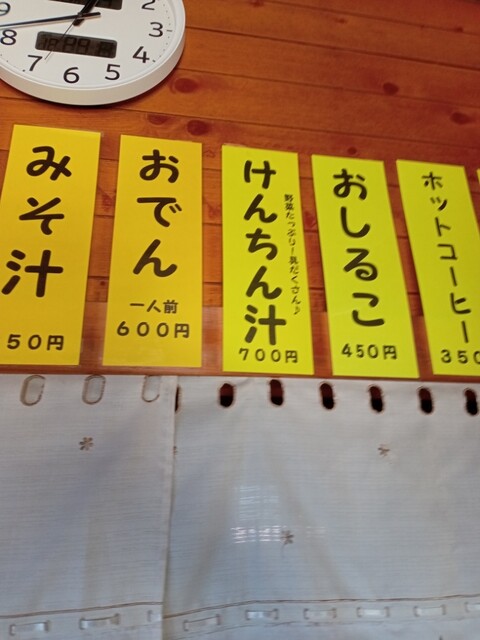 2
3
4
5
6
7
8
9
みそ汁
50円
おでん
一人前
600円
けんちん汁
野菜たっぷり!具だくさん♪
700円
おしるこ
450円
ホットコーヒー
350